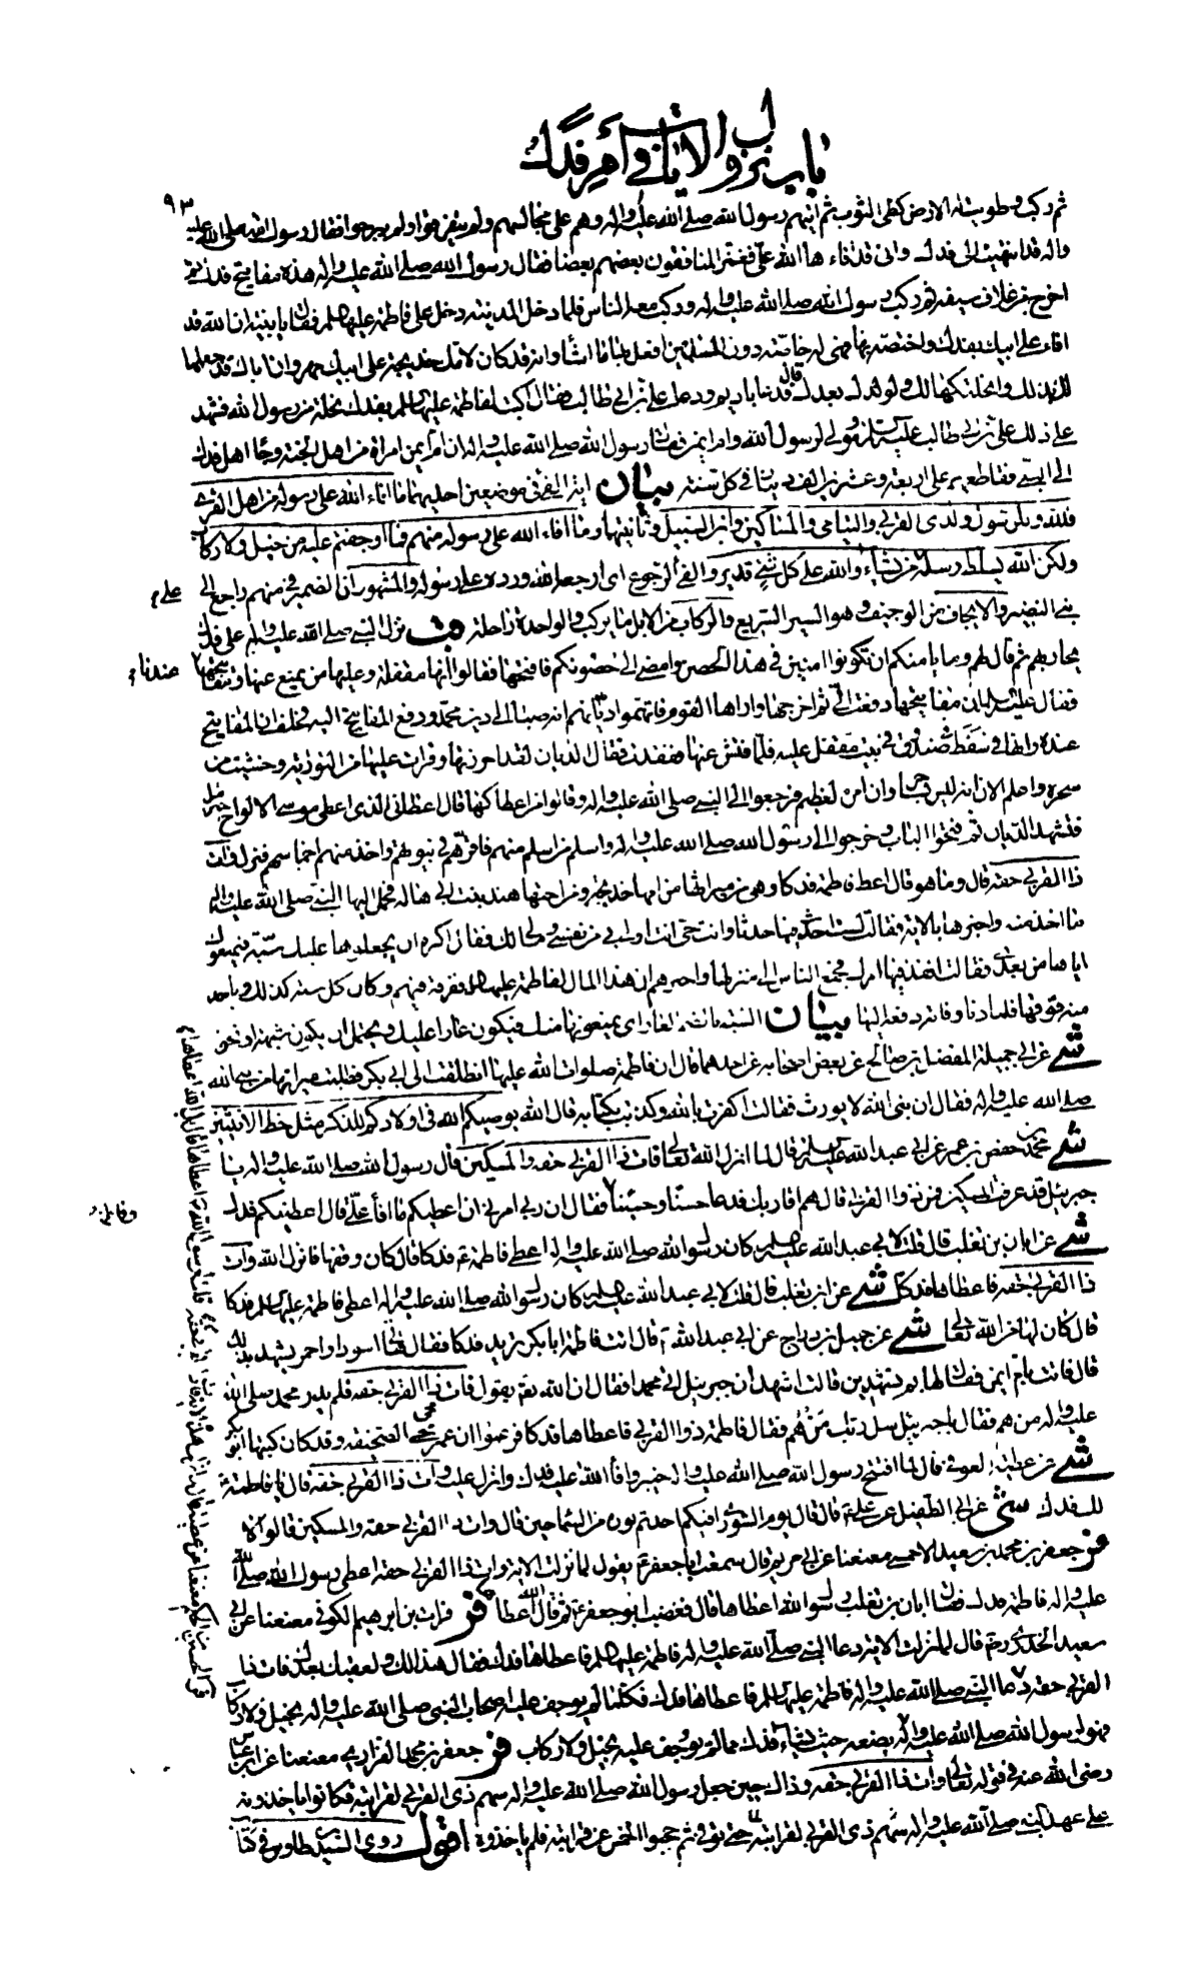 باب نزول الآيات في أمر فدك
٩٣
ثم ركب وطويت له الارض كطي الثوب ثم اتيهم رسول الله صلى الله عليه واله وهم على مجالسهم ولم يتفرقوا ولم يبرحوا فقال رسول الله صلى الله عليه
واله قد انتهيت الى فدك واني قد افاءها الله علي فغمز المنافقون بعضهم بعضا فقال رسول الله صلى الله عليه واله هذه مفاتيح فدك ثم
اخرج من غلاف سيفه ثم ركب رسول الله صلى الله عليه واله وركب معه الناس فلما دخل المدينة دخل على فاطمة عليها السلم فقال يا بنية ان الله قد
افاء على ابيك بفدك واختصه بها فهي له خاصة دون المسلمين افعل بها ما اشاء وانه قد كان لامك خديجة على ابيك مهر وان اباك قد جعلها
لك بذلك وانحلتكها لك ولولدك بعدك قال فدعا باديم ودعا علي بن ابي طالب فقال اكتب لفاطمة عليها السلم بفدك نحلة من رسول الله فشهد
على ذلك علي بن ابي طالب عليه السلم ومولى لرسول الله وام ايمن فقال رسول الله صلى الله عليه واله ان ام ايمن امراة من اهل الجنة وجاء اهل فدك
الى النبي فقاطعهم على اربعة وعشرين الف دينار في كل سنة بيان اية الفئ في موضعين احديهما ما افاء الله على رسوله من اهل القرى
فلله وللرسول ولذي القربى واليتامى والمساكين وابن السبيل وثانيتها وما افاء الله على رسوله منهم فما اوجفتم عليه من خيل ولا ركاب
ولكن الله يسلط رسله على من يشاء والله على كل شئ قدير والفئ الرجوع اي ارجعه الله ورده على رسوله والمشهور ان الضمير في منهم راجع الى
بني النضير والايجاف من الوجيف وهو السير السريع والركاب من الابل ما يركب والواحدة راحلة قب نزل النبي صلى الله عليه واله على فدك
يحاربهم ثم قال لهم وما يامنكم ان تكونوا امنين في هذا الحصن وامضي الى حصونكم فافتحها فقالوا انها مقفلة وعليها من يمنع عنها ومفاتيحها
عندنا
فقال عليه السلم ان مفاتيحها دفعت الي ثم اخرجها واراها القوم فاتهموا ديانهم انه صبا الى دين محمد ودفع المفاتيح اليه فحلف ان المفاتيح
عنده وانها في سفط في صندوق في بيت مقفل عليه فلما فتش عنها ففقدت فقال الديان لقد احرزتها وقرات عليها من التورية وخشيت من
سحره واعلم الان انه ليس بساحر وان امره لعظيم فرجعوا الى النبي صلى الله عليه واله وقالوا من اعطاكها قال اعطاني الذي اعطى موسى الالواح جبرئيل
فتشهد الديان ثم فتحوا الباب وخرجوا الى رسول الله صلى الله عليه واله واسلم من اسلم منهم فاقرهم في بيوتهم واخذ منهم اخماسهم فنزل وات
ذا القربى حقه قال وما هو قال اعط فاطمة فدكا وهي من ميراثها من امها خديجة ومن اختها هند بنت ابي هالة فحمل اليها النبي صلى الله عليه واله
ما اخذ منه واخبرها بالاية فقالت لست احدث فيها حدثا وانت حي انت اولى بي من نفسي ومالي لك فقال اكره ان يجعلوها عليك سبة فيمنعوك
اياها من بعدي فقالت انفذ فيها امرك فجمع الناس الى منزلها واخبرهم ان هذا المال لفاطمة عليها السلم ففرقه فيهم وكان كل سنة كذلك وياخذ
منه قوتها فلما دنا وفاته دفعه اليها بيان السبة بالضم العار اي يمنعونها منك فيكون عارا عليك ويحتمل ان يكون شبهة او نحوها
شي عن ابي جميلة المفضل بن صالح عن بعض اصحابه عن احدهما قال ان فاطمة صلوات الله عليها انطلقت الى ابي بكر فطلبت ميراثها من نبي الله
صلى الله عليه واله فقال ان نبي الله لا يورث فقالت اكفرت بالله وكذبت بكتابه قال الله يوصيكم الله في اولادكم للذكر مثل حظ الانثيين
شي محمد بن حفص بن عمر عن ابي عبد الله عليه السلم قال لما انزل الله تعالى وات ذا القربى حقه والمسكين قال رسول الله صلى الله عليه واله يا
جبرئيل قد عرفت المسكين فمن ذوا القربى قال هم اقاربك فدعا حسنا وحسينا وفاطمة فقال ان ربي امرني ان اعطيكم ما افاء علي قال اعطيتكم فدك
شي عن ابان بن تغلب قال قلت لابي عبد الله عليه السلم كان رسول الله صلى الله عليه واله اعطى فاطمة ع فدكا قال كان وقفها فانزل الله وات
ذا القربى حقه فاعطاها فدكا شي عن ابن تغلب قال قلت لابي عبد الله عليه السلم كان رسول الله صلى الله عليه واله اعطى فاطمة عليها السلم فدكا
قال كان لها من الله تعالى شي عن جميل بن دراج عن ابي عبد الله ع قال اتت فاطمة ابا بكر تريد فدكا فقال هاتي اسود او احمر يشهد بذلك
قال فاتت بام ايمن فقال لها بم تشهدين قالت اشهد ان جبرئيل اتى محمدا فقال ان الله تعالى يقول فات ذا القربى حقه فلم يدر محمد صلى الله
عليه واله من هم فقال يا جبرئيل سل ربك من هم فقال فاطمة ذوا القربى فاعطاها فدكا فزعموا ان عمر محى الصحيفة وقد كان كتبها ابو بكر
شي عن عطية العوفي قال لما افتتح رسول الله صلى الله عليه واله خيبر وافاء الله عليه فدك وانزل عليه وات ذا القربى حقه قال يا فاطمة
لك فدك شي عن ابي الطفيل عن علي ع قال قال يوم الشورى افيكم احد تم نوره من السماء حين قال وات ذا القربى حقه والمسكين قالوا لا
فر جعفر بن محمد بن سعيد الاحمسي معنعنا عن ابي مريم قال سمعت ابا جعفر ع يقول لما نزلت الاية وات ذا القربى حقه اعطى رسول الله صلى الله
عليه واله فاطمة فدك فقال ابان بن تغلب رسول الله اعطاها قال فغضب ابو جعفر ع ثم قال الله اعطاها فر فرات بن ابرهيم الكوفي معنعنا عن ابي
سعيد الخدري رحمه قال لما نزلت الاية دعا النبي صلى الله عليه واله فاطمة عليها السلم فاعطاها فدك فقال هذا لك ولعقبك بعدك فات ذا
القربى حقه دعا النبي صلى الله عليه واله فاطمة عليها السلم فاعطاها فدك فكلما لم يوجف عليه اصحاب النبي صلى الله عليه واله بخيل ولا ركاب
فهو لرسول الله صلى الله عليه واله يضعه حيث يشاء وفدك مما لم يوجف عليه بخيل ولا ركاب فر جعفر بن محمد الفزاري معنعنا عن ابن عباس
رضي الله عنه في قوله تعالى وات ذا القربى حقه وذاك حين جعل رسول الله صلى الله عليه واله سهم ذي القربى لقرابته فكانوا ياخذونه
على عهد النبي صلى الله عليه واله سهم ذي القربى لقرابته حتى توفي ثم حجبوا الخمس عن قرابته فلم ياخذوه اقول روى السيد بن طاوس في كتاب